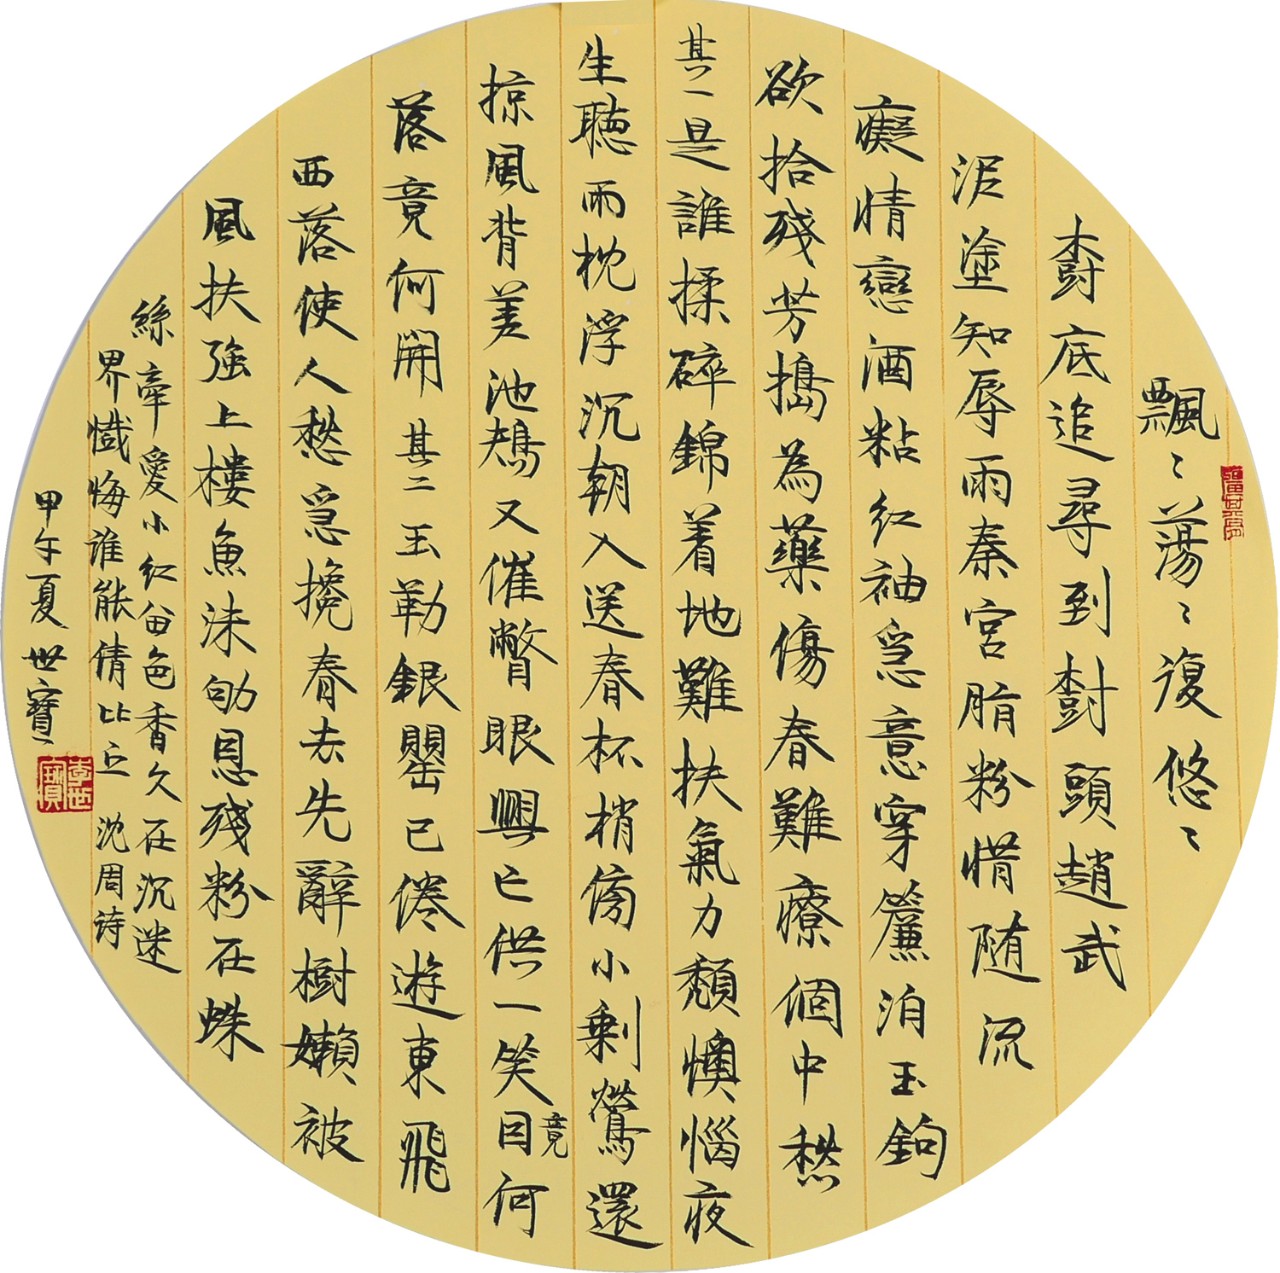 飄〻蕩〻復悠〻
樹底追尋到樹頭趙武
泥塗知辱雨秦宮脂粉惜随流
癡情戀酒粘紅袖急意穿簾泊玉鉤
欲拾殘芳搗為藥傷春難療個中愁
其一是誰揉碎錦着地難扶氣力頹懊惱夜
生聽雨枕浮沉朝入送春杯梢傍小剩鶯還
掠風背差池又催瞥眼興亡供一笑目何竟
落竟何開其二玉勒銀罌已倦遊東飛
西落使人愁急攙春去先辭樹懶被
風扶強上樓魚沫劬恩殘粉在蛛
絲牽愛小紅留色香久在沉迷
界懺悔誰能倩比丘 沈周诗
甲午夏 世寶
李世寶